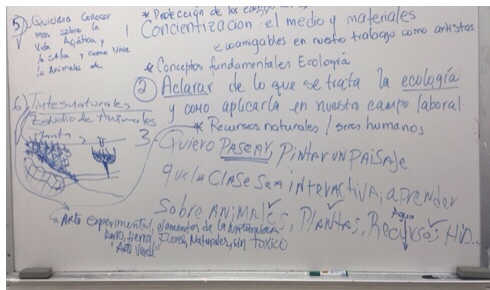 5) Quisiera conocer
mas sobre la
Vida
la selva y como vive
la Animales
* Protección de los
1 Concientización el medio y materiales
ecoamigables en nuestro trabajo como artistas.
* Conceptos fundamentales Ecología
2 Aclarar de lo que se trata la ecología
y como aplicarla en nuestro campo laboral.
* Recursos naturales / seres humanos
6)
Estudio de Animales
3- Quiero PASEAR, PINTAR UN PAISAJE
que la CLASE SEA INTERACTIVA, aprender
Sobre ANIMALES, PLANTAS, Recursos,
Agua
"Arte experimental, elementos de la Naturaleza
barro, tierra, Flores, Naturales, sin toxico
"Arte Verde"